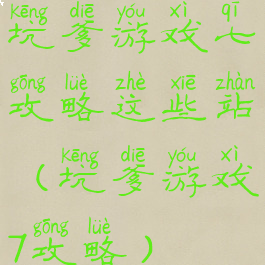 kēng diē yóu xì qī
坑爹游戏七
gōng lüè zhè xiē zhàn
攻略这些站
kēng diē yóu xì
（坑爹游戏
gōng lüè
7攻略）